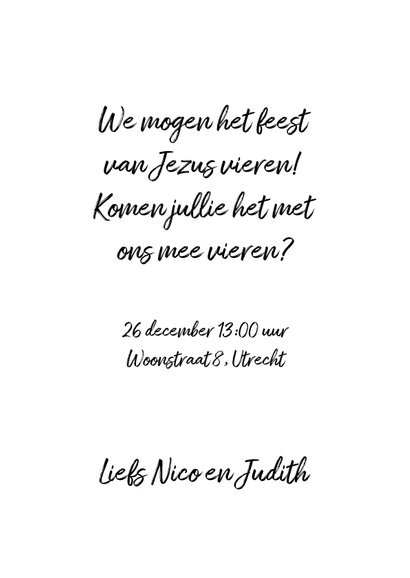 We mogen het feest
van Jezus vieren!
Komen jullie het met
ons mee vieren?
26 december 13:00 uur
Woonstraat 8, Utrecht
Liefs Nico en Judith